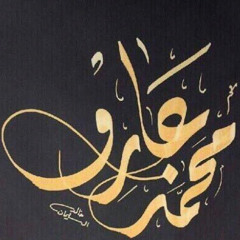 محمد عارف